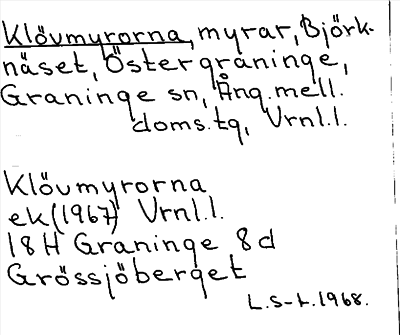 Klövmyrorna, myrar, Björk-
näset, Östergraninge,
Graninge sn, Ång.mell.
doms.tg, Vrnl.l.
Klövmyrorna
ek(1967) Vrnl.l.
18H Graninge 8d
Grössjöberget
L.S-t.1968.